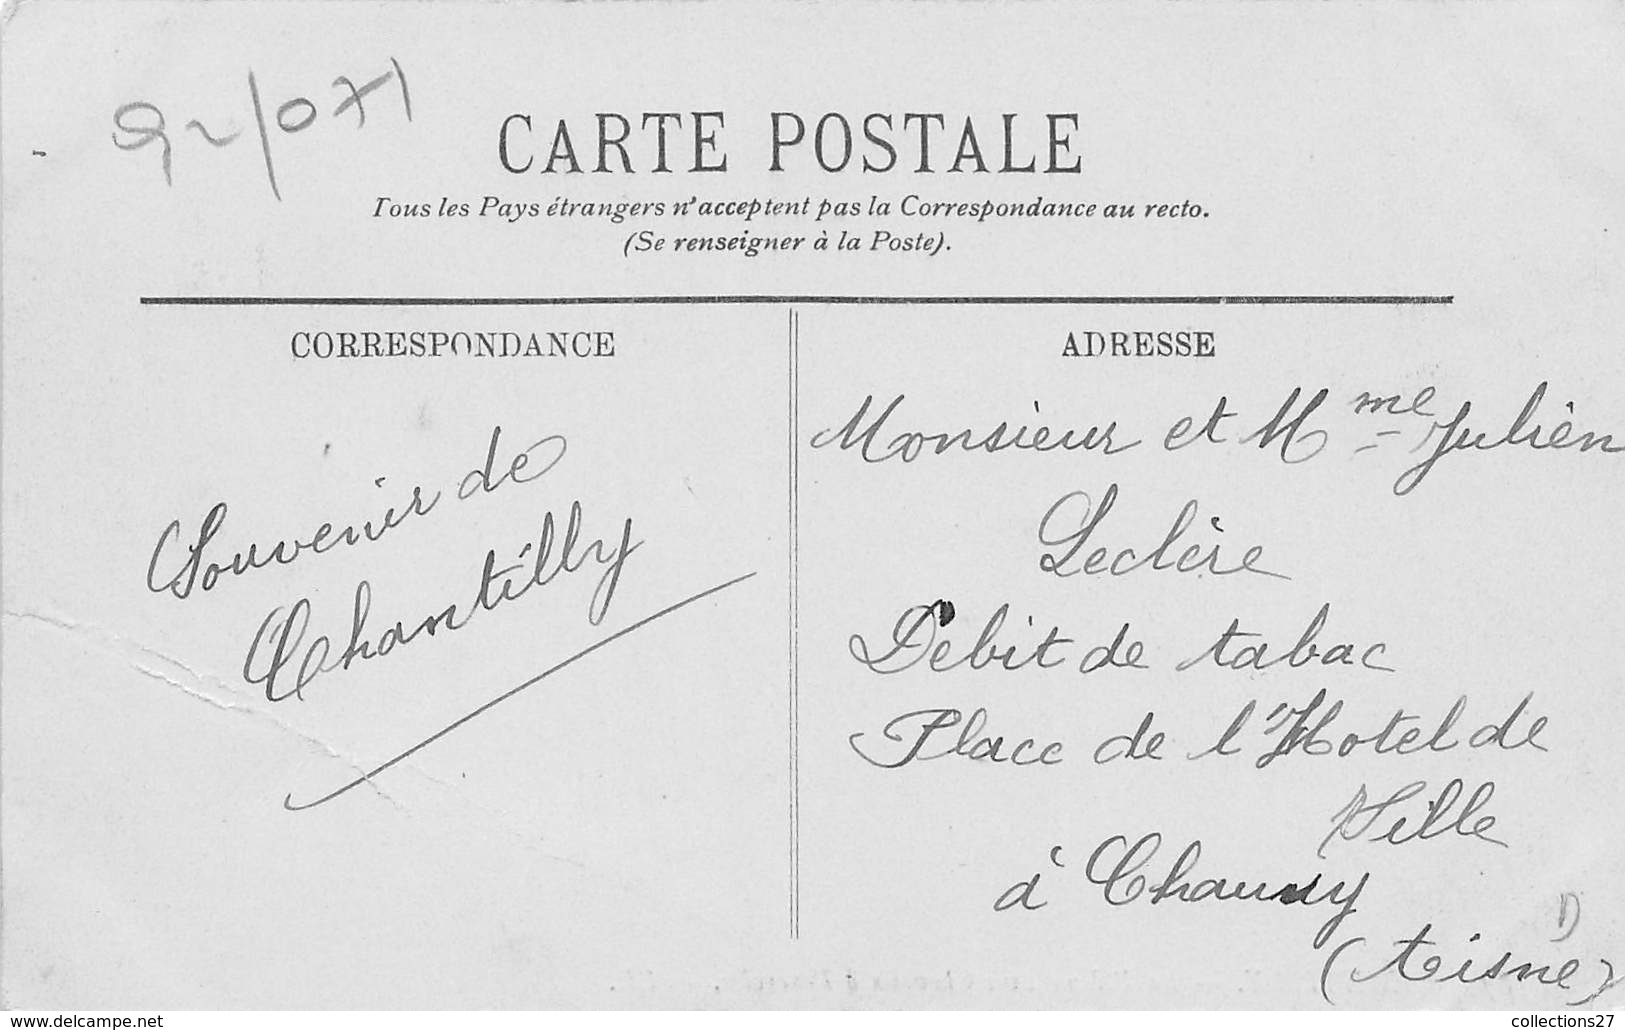 92/071
CARTE POSTALE
Tous les Pays étrangers n'acceptent pas la Correspondance au recto.
(Se renseigner à la Poste).
CORRESPONDANCE
Souvenir de
Chantilly
ADRESSE
Monsieur et Mme Julien
Leclère
Debit de tabac
Place de l'Hotel de
Ville
à Chauny
(Aisne)
www.delcampe.net
collections27